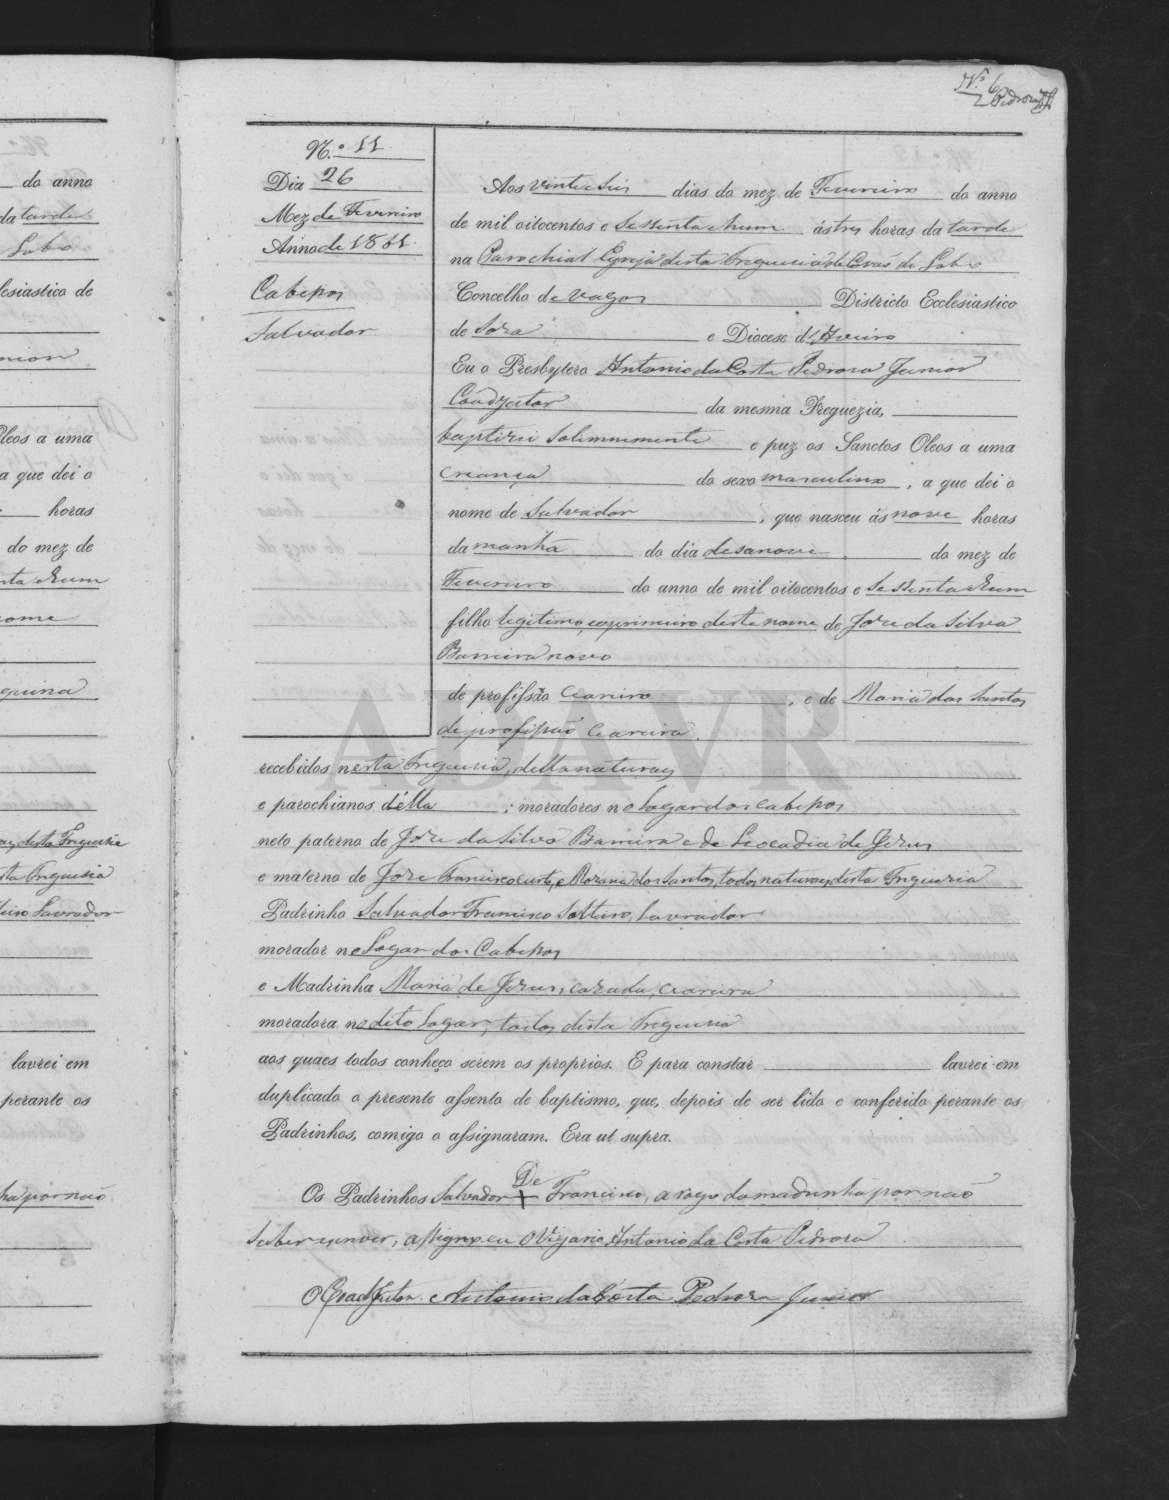 N.º 6
Pedroza Jr
N.º 11
Dia 26
Mez de Fevereiro
Anno de 1861
Cabeços
Salvador
Aos vinte seis dias do mez de Fevereiro do anno
de mil oitocentos e sessenta e hum ás tres horas da tarde
na Parochial Egreja desta Freguezia de Covão do Lobo
Concelho de Vagos Districto Ecclesiastico
de Soza e Diocese d'Aveiro
Eu o Presbytero Antonio da Costa Pedroza Junior
Coadjutor da mesma Freguezia,
baptizei Solemnemente e puz os Sanctos Oleos a uma
criança do sexo masculino, a que dei o
nome de Salvador, que nasceu ás nove horas
da manhã do dia desanove do mez de
Fevereiro do anno de mil oitocentos e sessenta e hum
filho legitimo, e o primeiro deste nome de Joze da Silva
Barreira novo
de profissão Ceareiro, e de Maria dos Santos
de profissão Ceareira.
recebidos nesta Freguezia, della naturaes
e parochianos d'élla; moradores no Logar dos Cabeços
neto paterno de Joze da Silva Barreira e de Leocadia de Jezus
e materno de Joze Francisco e Rozaria dos Santos, todos naturaes desta Freguezia
Padrinho Salvador Francisco Solteiro, lavrador
morador no Logar dos Cabeços
e Madrinha Maria de Jezus, cazada, ceareira
moradora no dito Logar, todos desta Freguezia
aos quaes todos conheço serem os proprios. E para constar lavrei em
duplicado o presente assento de baptismo, que, depois de ser lido e conferido perante os
Padrinhos, comigo o assignaram. Era ut supra.
De
Os Padrinhos Salvador + Francisco, a rogo da madrinha por não
saber escrever, assigno eu o Vigario, Antonio da Costa Pedroza
O Coadjutor Antonio da Costa Pedroza Junior
ADAVR
do anno
da tarde
Lobo
lesiastico de
Oleos a uma
a que dei o
horas
do mez de
nta e hum
nome
desta Freguezia
sta Freguezia
lavrador
lavrei em
perante os
nha por não